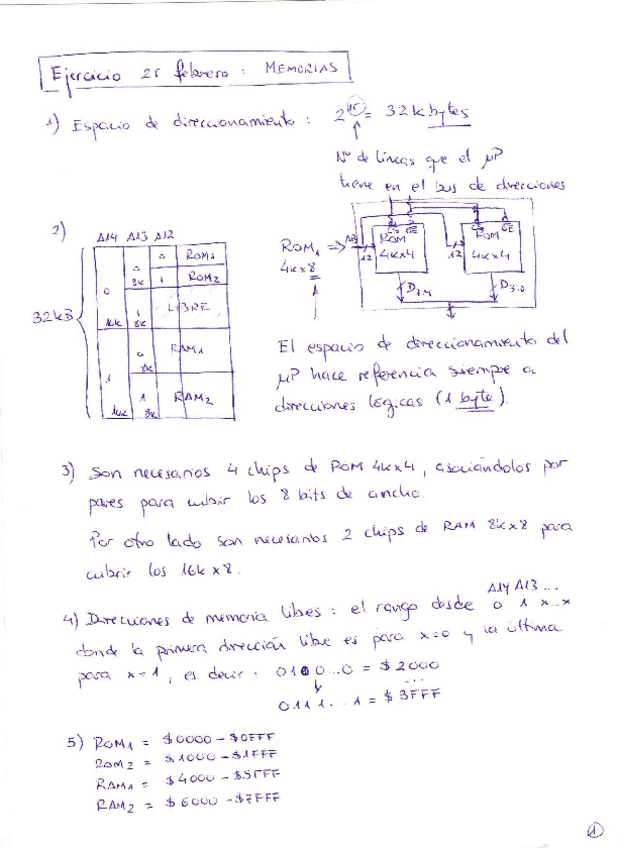 Ejercicio 25 febrero : MEMORIAS
1) Espacio de direccionamiento : 2^15 = 32 k bytes
Nº de líneas que el µP
tiene en el bus de direcciones
2)
A14 A13 A12
32kB
0
16k
0
8k
0
ROM1
1
ROM2
1
8k
LIBRE
1
16k
0
8k
RAM1
1
8k
RAM2
ROM1 =>
4k x 8
12
CS OE
ROM
4k x 4
D7-4
12
CS OE
ROM
4k x 4
D3-0
El espacio de direccionamiento del
µP hace referencia siempre a
direcciones lógicas (1 byte).
3) Son necesarios 4 chips de ROM 4kx4, asociándolos por
pares para cubrir los 8 bits de ancho.
Por otro lado son necesarios 2 chips de RAM 8kx8 para
cubrir los 16k x 8.
A14 A13 ...
4) Direcciones de memoria libres : el rango desde 0 1 x..x
donde la primera dirección libre es para x=0 y la última
para x=1, es decir : 0100...0 = $2000
...
0111...1 = $3FFF
5) ROM1 = $0000 - $0FFF
ROM2 = $1000 - $1FFF
RAM1 = $4000 - $5FFF
RAM2 = $6000 - $7FFF
1